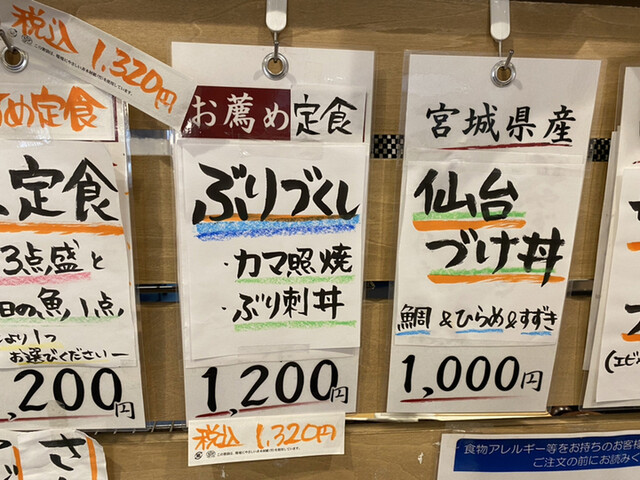 税込 1,320円
め定食
定食
3点盛と
日の魚1点
より1つ
お選びくださいー
,200円
お薦め定食
ぶりづくし
・カマ照焼
・ぶり刺丼
1,200円
税込 1,320円
宮城県産
仙台
づけ丼
鯛&ひらめ&すずき
1,000円
(エビ
さ
食物アレルギー等をお持ちのお客様
ご注文の前にお読みく